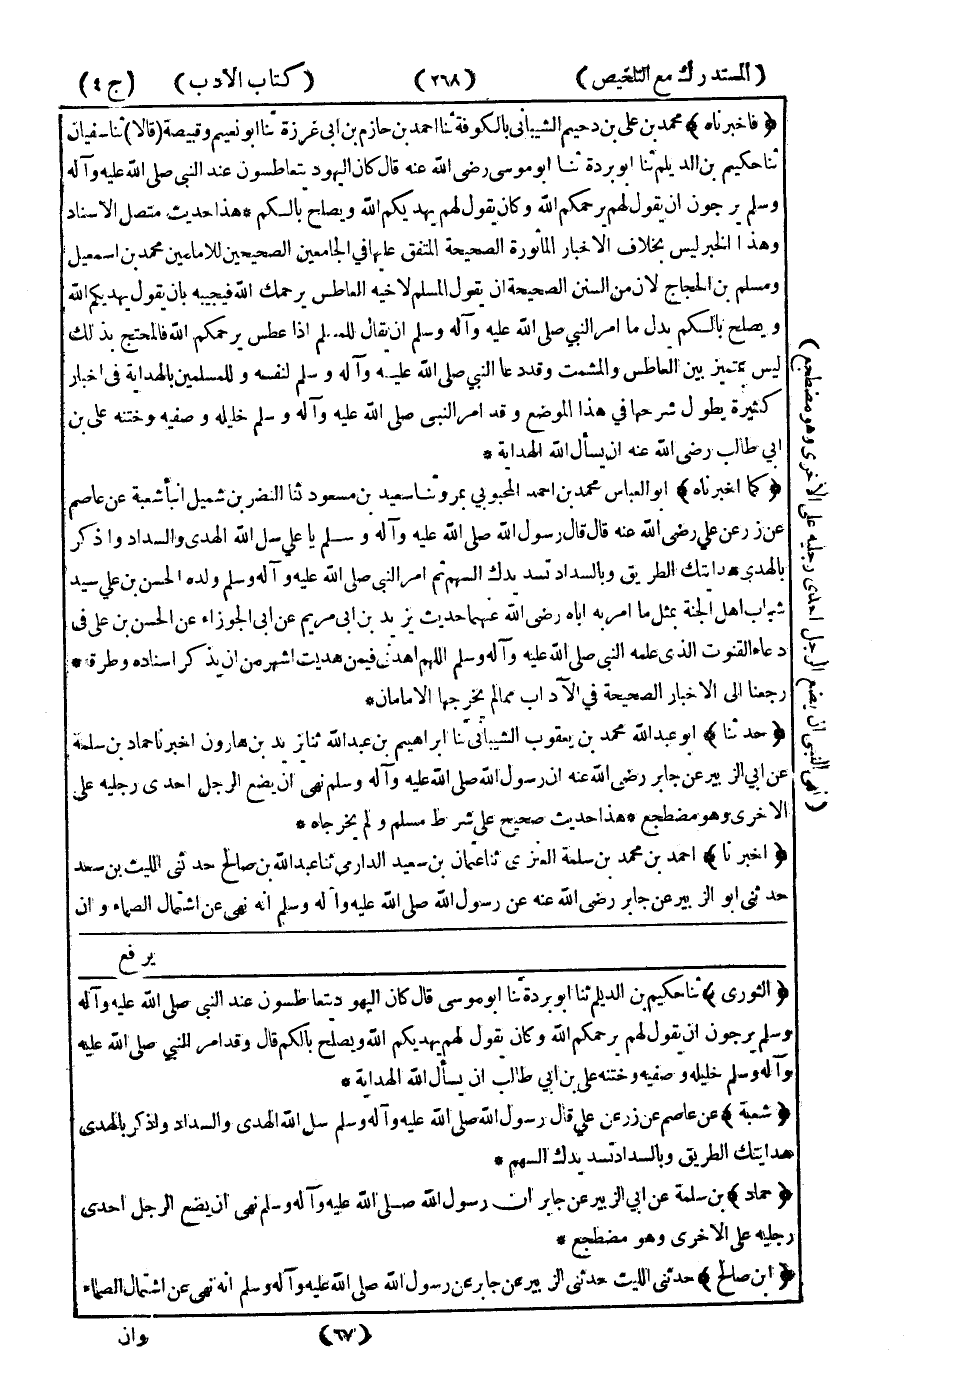 (المستدرك مع التلخيص) (٢٦٨) (كتاب الادب) (ج ٤)
﴿فاخبرناه﴾ محمد بن على بن دحيم الشيبانى بالكوفة ثنا احمد بن حازم بن ابى غرزة ثنا ابو نعيم وقبيصة (قالا) ثنا سفيان
ثنا حكيم بن الديلم ثنا ابو بردة ثنا ابو موسى رضى الله عنه قال كان اليهود يتعاطسون عند النبي صلى الله عليه وآله
وسلم يرجون ان يقول لهم يرحمكم الله وكان يقول لهم يهديكم الله ويصلح بالكم * هذا حديث متصل الاسناد
وهذا الخبر ليس بخلاف الاخبار المأثورة الصحيحة المتفق عليها في الجامعين الصحيحين للامامين محمد بن اسمعيل
ومسلم بن الحجاج لان من السنن الصحيحة ان يقول المسلم لاخيه العاطس يرحمك الله فيجيبه بان يقول يهديكم الله
ويصلح بالكم بدل ما امر النبي صلى الله عليه وآله وسلم ان يقال للمسلم اذا عطس يرحمكم الله فالمحتج بذلك
ليس بمتميز بين العاطس والمشمت وقد دعا النبي صلى الله عليه وآله وسلم لنفسه وللمسلمين بالهداية فى اخبار
كثيرة يطول شرحها في هذا الموضع وقد امر النبى صلى الله عليه وآله وسلم خليله وصفيه وختنه على بن
ابي طالب رضى الله عنه ان يسأل الله الهداية *
﴿كما اخبرناه﴾ ابو العباس محمد بن احمد المحبوبي بمرو ثنا سعيد بن مسعود ثنا النضر بن شميل انبأ شعبة عن عاصم
عن زر عن علي رضى الله عنه قال قال رسول الله صلى الله عليه وآله وسلم يا علي سل الله الهدى والسداد واذكر
بالهدى هدايتك الطريق وبالسداد تسديدك السهم ثم امر النبى صلى الله عليه وآله وسلم ولده الحسن بن علي سيد
شباب اهل الجنة بمثل ما امر به اباه رضى الله عنهما حديث يزيد بن ابى مريم عن ابى الجوزاء عن الحسن بن على فى
دعاء القنوت الذى علمه النبي صلى الله عليه وآله وسلم اللهم اهدنى فيمن هديت اشهر من ان يذكر اسناده وطرقه *
رجعنا الى الاخبار الصحيحة في الآداب مما لم يخرجها الامامان *
﴿حدثنا﴾ ابو عبد الله محمد بن يعقوب الشيبانى ثنا ابراهيم بن عبد الله ثنا يزيد بن هارون اخبرنا حماد بن سلمة
عن ابي الزبير عن جابر رضى الله عنه ان رسول الله صلى الله عليه وآله وسلم نهى ان يضع الرجل احدى رجليه على
الاخرى وهو مضطجع * هذا حديث صحيح على شرط مسلم ولم يخرجاه *
﴿اخبرنا﴾ احمد بن محمد بن سلمة العنزى ثنا عثمان بن سعيد الدارمى ثنا عبد الله بن صالح حدثنى الليث بن سعد
حدثنى ابو الزبير عن جابر رضى الله عنه عن رسول الله صلى الله عليه وآله وسلم انه نهى عن اشتمال الصماء وان
يرفع
(نهى النبى ان يضع الرجل احدى رجليه على الاخرى وهو مضطجع)
﴿الثورى﴾ ثنا حكيم بن الديلم ثنا ابو بردة ثنا ابو موسى قال كان اليهود يتعاطسون عند النبى صلى الله عليه وآله
وسلم يرجون ان يقول لهم يرحمكم الله وكان يقول لهم يهديكم الله ويصلح بالكم قال وقد امر النبي صلى الله عليه
وآله وسلم خليله وصفيه وختنه على بن ابي طالب ان يسأل الله الهداية *
﴿شعبة﴾ عن عاصم عن زر عن علي قال رسول الله صلى الله عليه وآله وسلم سل الله الهدى والسداد واذكر بالهدى
هدايتك الطريق وبالسداد تسديدك السهم *
﴿حماد﴾ بن سلمة عن ابي الزبير عن جابر ان رسول الله صلى الله عليه وآله وسلم نهى ان يضع الرجل احدى
رجليه على الاخرى وهو مضطجع *
﴿ابن صالح﴾ حدثنى الليث حدثنى الزبير عن جابر عن رسول الله صلى الله عليه وآله وسلم انه نهى عن اشتمال الصماء
(٦٧) وان